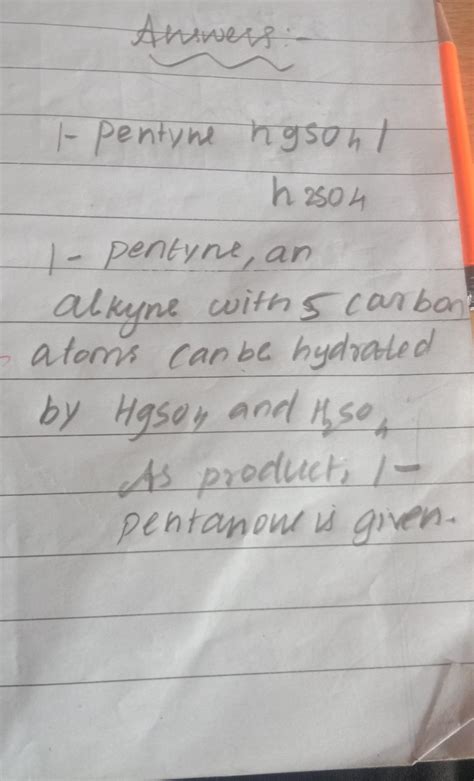 Answers:-
1- Pentyne hgso4 /
h2so4
1- pentyne, an
alkyne with 5 carbon
atoms can be hydrated
by Hgso4 and H2so4
As product, 1-
pentanone is given.